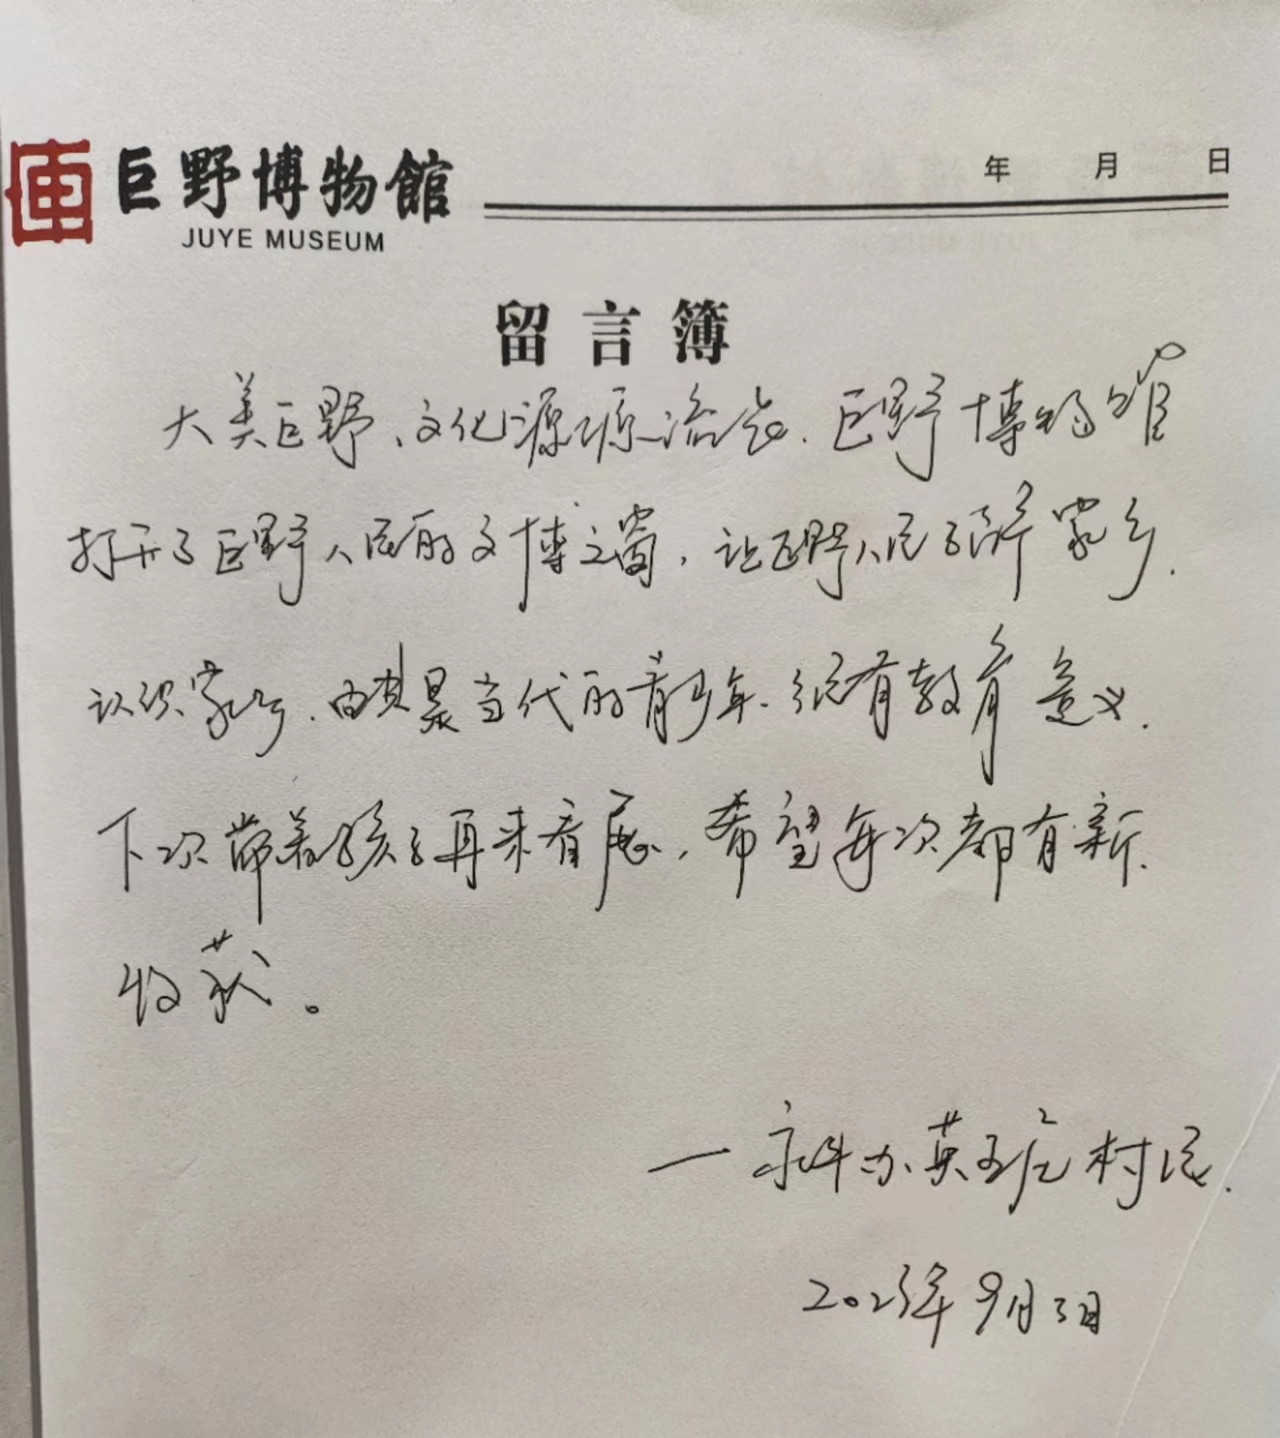 巨野博物館
JUYE MUSEUM
年 月 日
留言簿
大美巨野、文化源源流长.巨野博物馆
打开了巨野人民的文博之窗,让巨野人民了解家乡.
认识家乡.尤其是当代的青少年.很有教育意义.
下次带着孩子再来看展,希望每次都有新
收获。
一 办英王庄村民.
2023年9月3日